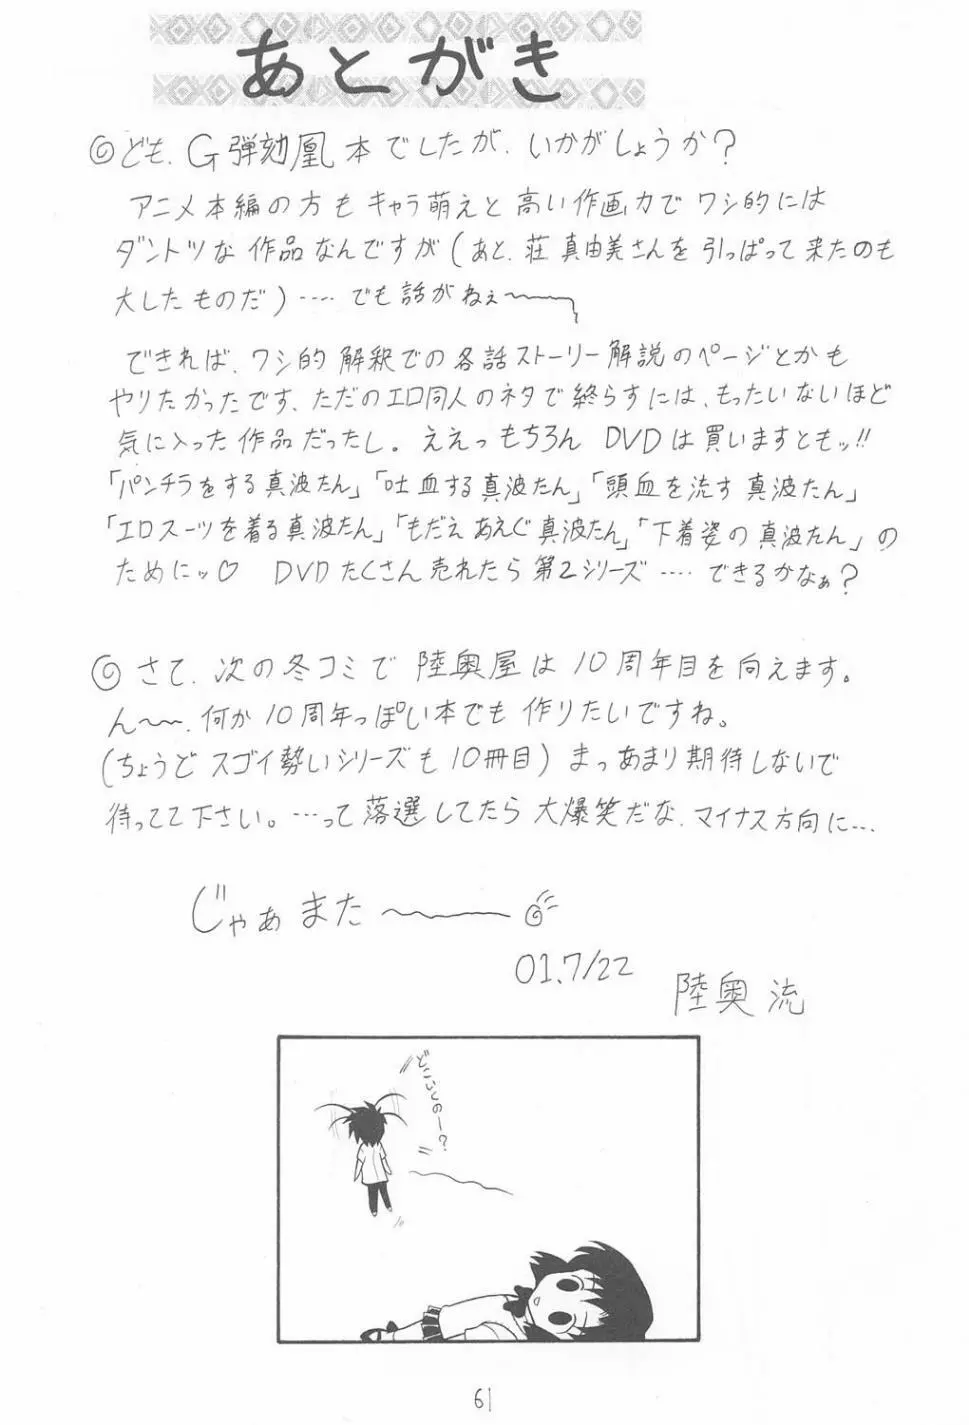 あとがき
◎ども、G弾効凰本でしたが、いかがしょうか？
アニメ本編の方もキャラ萌えと高い作画力でワシ的には
ダントツな作品なんですが(あと、荘真由美さんを引っぱって来たのも
大したものだ)‥‥でも話がねぇ〜
できれば、ワシ的解釈での各話ストーリー解説のページとかも
やりたかったです、ただのエロ同人のネタで終らすには、もったいないほど
気に入った作品だったし。ええっもちろんDVDは買いますともッ!!
「パンチラをする真波たん」「吐血する真波たん」「頭血を流す真波たん」
「エロスーツを着る真波たん」「もだえあえぐ真波たん」「下着姿の真波たん」の
ためにッ♡ DVDたくさん売れたら第2シリーズ‥‥できるかなぁ？
◎さて、次の冬コミで陸奥屋は10周年目を向えます。
ん〜〜、何か10周年っぽい本でも作りたいですね。
(ちょうどスゴイ勢いシリーズも10冊目)まっあまり期待しないで
待ってて下さい。‥‥って落選してたら大爆笑だな、マイナス方向に‥‥
じゃぁまた〜
01.7/22
陸奥 流
どこいくのー？
61